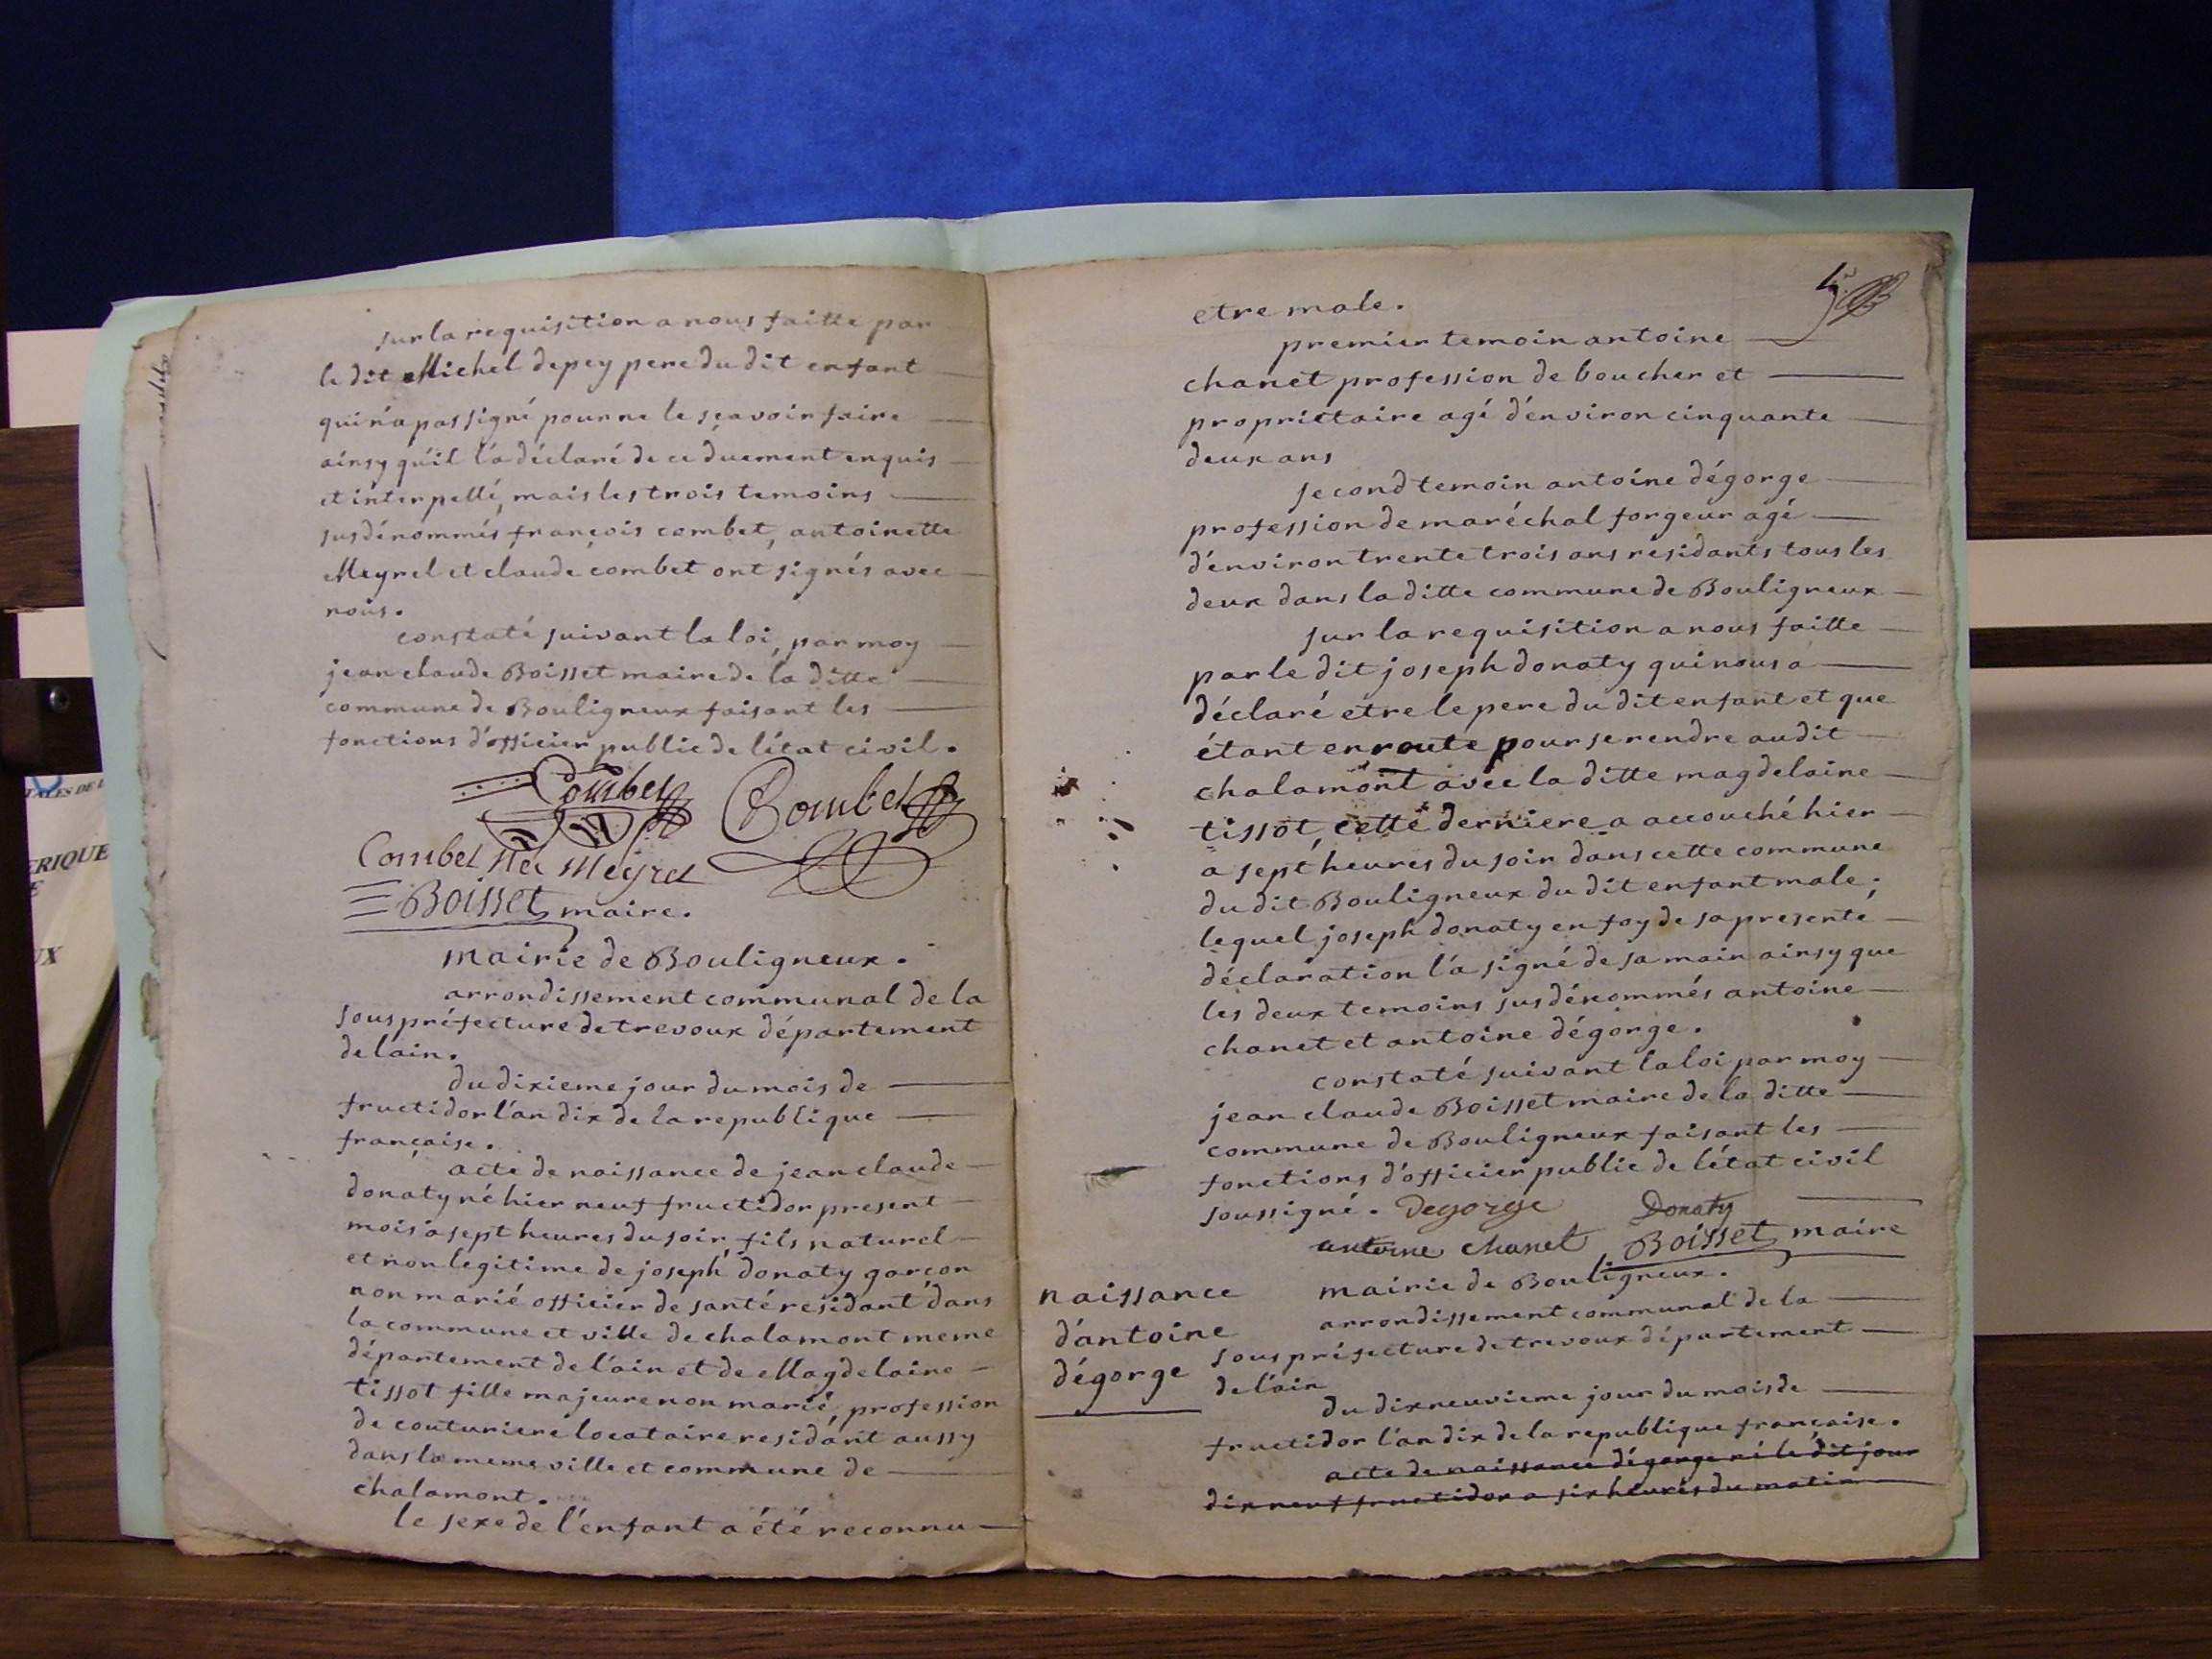 sur la requisition a nous faitte par
le dit Michel depey pere du dit enfant
qui n'a pas signé pour ne le sçavoir faire
ainsy qu'il l'a déclaré de ce duement enquis
et interpellé, mais les trois temoins
susdénommés françois combet, antoinette
Meyrel et claude combet ont signés avec
nous.
constaté suivant la loi, par moy
jean claude Boisset maire de la ditte
commune de Bouligneux faisant les
fonctions d'officier public de l'état civil.
Combet Combet
Combet née Meyrel
Boisset maire.
mairie de Bouligneux.
arrondissement communal de la
souspréfecture de trevoux département
de lain.
du dixieme jour du mois de
fructidor l'an dix de la republique
française.
acte de naissance de jean claude
donaty né hier neuf fructidor present
mois a sept heures du soir fils naturel
et non legitime de joseph donaty garçon
non marié officier de santé residant dans
la commune et ville de chalamont meme
département de l'ain et de Magdelaine
tissot fille majeure non marié, profession
de couturiere locataire residant aussy
dans la meme ville et commune de
chalamont.
le sexe de l'enfant a été reconnu
etre male.
premier temoin antoine
chanet profession de boucher et
propriétaire agé d'environ cinquante
deux ans
second temoin antoine dégorge
profession de maréchal forgeur agé
d'environ trente trois ans résidants tous les
deux dans la ditte commune de Bouligneux
sur la requisition a nous faitte
par le dit joseph donaty qui nous a
déclaré etre le pere du dit enfant et que
étant en route pour se rendre au dit
chalamont avec la ditte magdelaine
tissot, cette derniere a accouché hier
a sept heures du soir dans cette commune
du dit Bouligneux du dit enfant male;
lequel joseph donaty en foy de sa presente
déclaration l'a signé de sa main ainsy que
les deux temoins susdénommés antoine
chanet et antoine dégorge.
constaté suivant la loi par moy
jean claude Boisset maire de la ditte
commune de Bouligneux faisant les
fonctions d'officier public de l'état civil
soussigné. Degorge Donaty
antoine chanet Boisset maire
naissance
d'antoine
dégorge
mairie de Bouligneux.
arrondissement communal de la
souspréfecture de trevoux département
de l'ain
du dixneuvieme jour du mois de
fructidor l'an dix de la republique française.
acte de naissance dégorge né le dit jour
dix neuf fructidor a six heures du matin
ERIQUE